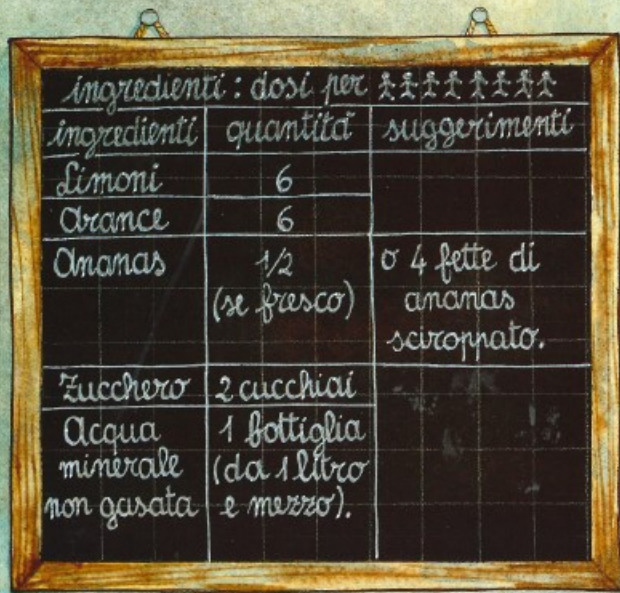 ingredienti: dosi per
ingredienti quantità suggerimenti
Limoni 6
Arance 6
Ananas 1/2 (se fresco) o 4 fette di ananas sciroppato.
Zucchero 2 cucchiai
Acqua minerale non gasata 1 bottiglia (da 1 litro e mezzo).